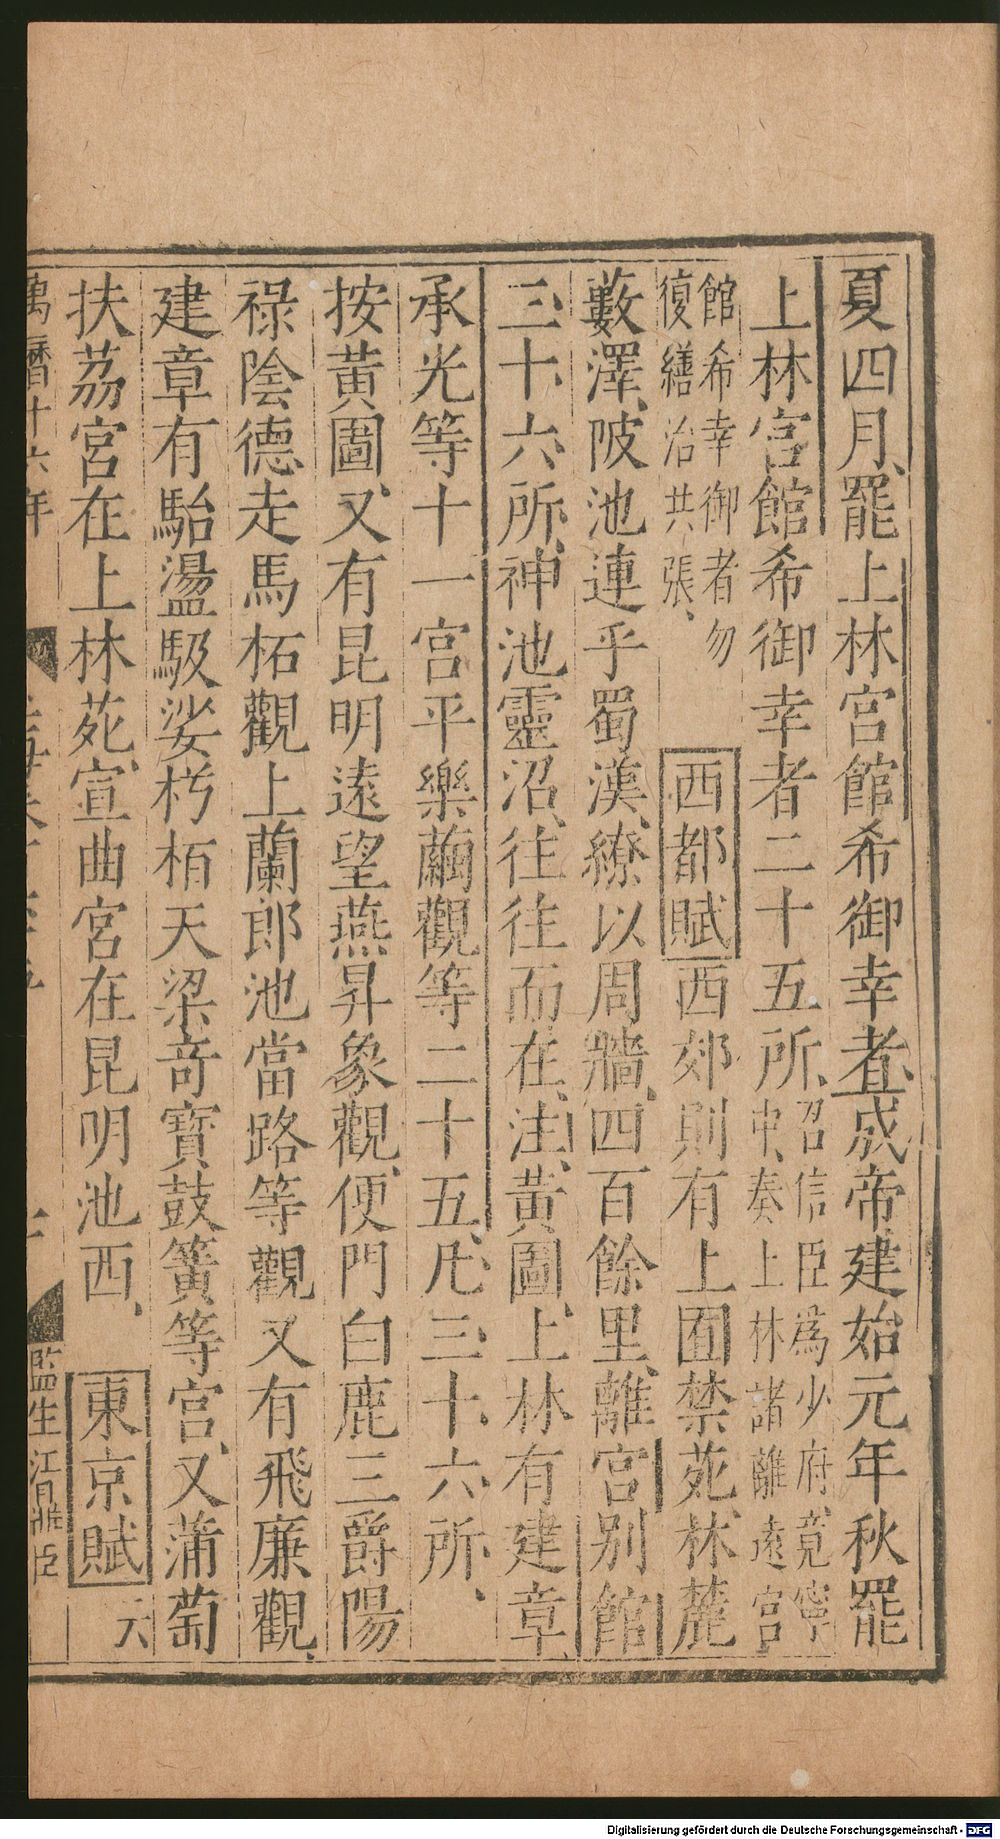 夏四月、罷上林宮館希御幸者、成帝建始元年秋罷
上林宮館希御幸者二十五所、召信臣爲少府竟寧
中、奏上林諸離遠宮
館希幸御者勿
復繕治共張、
西都賦西郊則有上囿禁苑、林麓
藪澤、陂池連乎蜀漢、繚以周牆、四百餘里、離宮别館
三十六所、神池靈沼、往往而在、注、黃圖、上林有建章
承光等十一宮平樂繭觀等二十五、凡三十六所、
按黃圖、又有昆明遠望燕昇象觀、便門白鹿三爵陽
祿陰德走馬柘觀上蘭郎池當路等觀又有飛廉觀、
建章有駘盪馺娑枍栢天梁竒寶鼓簧等宮、又蒲萄
扶荔宮在上林苑、宣曲宮在昆明池西、東京賦云
萬曆十六年
監生
Digitalisierung gefördert durch die Deutsche Forschungsgemeinschaft - DFG